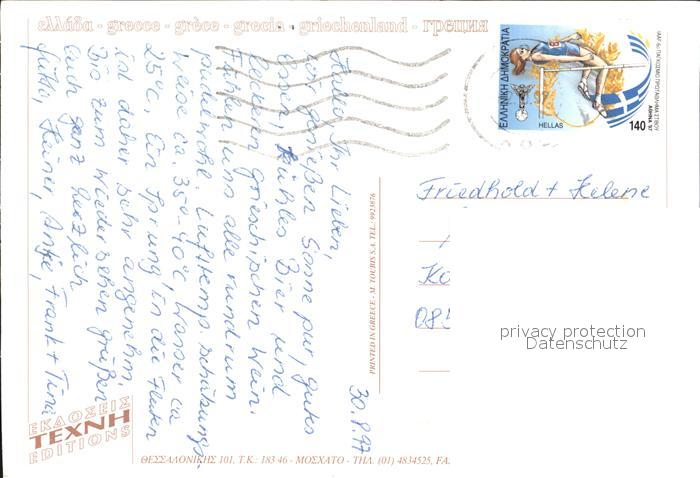 ελλάδα - greece - grèce - grecia - griechenland - греция
30.8.97
Hallo Ihr Lieben,
wir genießen Sonne pur, gutes
Essen, kühles Bier und
leckeren griechischen Wein.
Fühlen uns alle rundrum
pudelwohl. Lufttemp. schätzungs-
weise ca. 35°-40°C, Wasser ca
25°C. Ein Sprung in die Fluten
ist daher sehr angenehm.
Bis zum Wiedersehen grüßen
Euch ganz herzlich
Heiner, Antje, Frank + Tina
ΕΚΔΟΣΕΙΣ
ΤΕΧΝΗ
EDITIONS
ΘΕΣΣΑΛΟΝΙΚΗΣ 101, Τ.Κ.: 183 46 - ΜΟΣΧΑΤΟ - ΤΗΛ. (01) 4834525, FA
PRINTED IN GREECE - M. TOUBIS S.A. TEL.: 9923876
ΕΛΛΗΝΙΚΗ ΔΗΜΟΚΡΑΤΙΑ
HELLAS
140
ΑΘΗΝΑ '97
Friedhold + Helene
Ko
085
privacy protection
Datenschutz